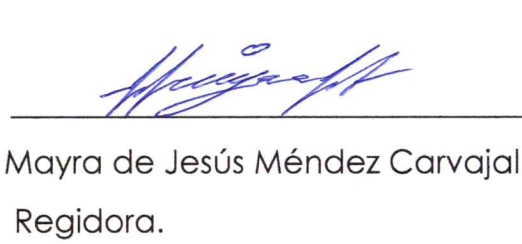 Mayra de Jesús Méndez Carvajal
Regidora.